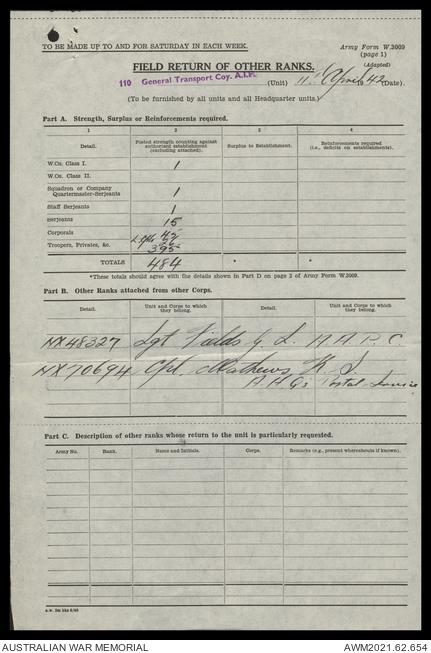 TO BE MADE UP TO AND FOR SATURDAY IN EACH WEEK.
Army Form W.3009
(page 1)
(Adapted)
FIELD RETURN OF OTHER RANKS.
110 General Transport Coy. A.I.F. (Unit) 11th April 1942 (Date).
(To be furnished by all units and all Headquarter units.)
Part A. Strength, Surplus or Reinforcements required.
1 2 3 4
Detail. Posted strength counting against authorised establishment (excluding attached). Surplus to Establishment. Reinforcements required (i.e., deficits on establishments).
W.Os. Class I. 1
W.Os. Class II.
Squadron or Company Quartermaster-Serjeants 1
Staff Serjeants 1
Serjeants 15
Corporals
L.Cpls
Troopers, Privates, &c. 395
TOTALS 484 * *
*These totals should agree with the details shown in Part D on page 2 of Army Form W.3009.
Part B. Other Ranks attached from other Corps.
Detail. Unit and Corps to which they belong. Detail. Unit and Corps to which they belong.
NX48327 Sgt Fields G. L.
NX70694 Cpl Mathews K. S.
Postal Service
Part C. Description of other ranks whose return to the unit is particularly requested.
Army No. Rank. Name and Initials. Corps. Remarks (e.g., present whereabouts if known).
AUSTRALIAN WAR MEMORIAL
AWM2021.62.654